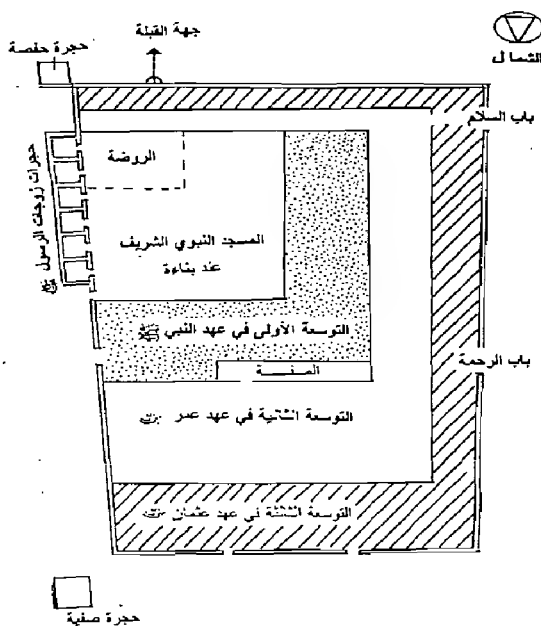 جهة القبلة
حجرة حفصة
الشمال
باب السلام
الروضة
حجرات زوجات الرسول ﷺ
المسجد النبوي الشريف
عند بناءة
التوسعة الأولى في عهد النبي ﷺ
باب الرحمة
الصفـــة
التوسعة الثانية في عهد عمر
التوسعة الثالثة في عهد عثمان
حجرة صفية